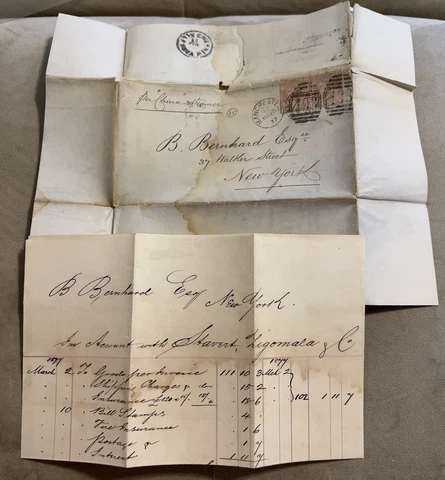 Per "China" Steamer
MANCHESTER
B. Bernhard Esqre
37 Walker Street
New York
B Bernhard Esq
New York.
In Account with Stavert, Zigomala & Co
1877
March 2 To Goods per Invoice 111 10 3
" " Shipping Charges & " 15 2
" " Insurance 18 6
" 10 Bill Stamps " 4 "
" " Fire Insurance " 1 6
" " Postage & " 1 7
" " Interest 1 11 7
1877
Mch 2
102 1 11 7